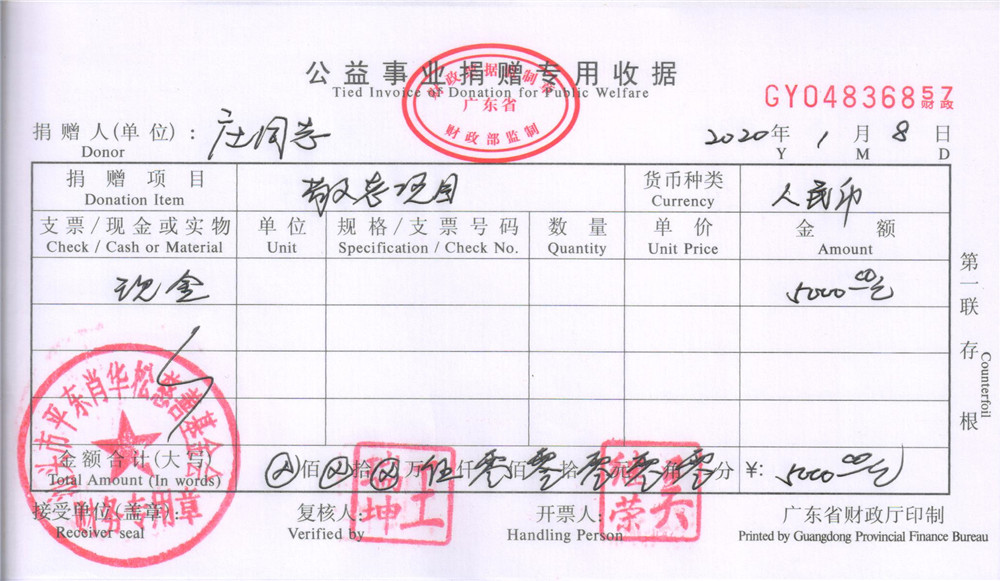 公益事业捐赠专用收据
Tied Invoice of Donation for Public Welfare
广东省
财政部监制
GY04836857
财政
捐赠人(单位): 庄同学
Donor
2020年 1月 8日
Y M D
捐赠项目 敬老项目 货币种类 人民币
Donation Item Currency
支票/现金或实物 单位 规格/支票号码 数量 单价 金额
Check / Cash or Material Unit Specification / Check No. Quantity Unit Price Amount
现金 5000.00元
第一联 存根
Counterfoil
市平东肖华松慈善基金会
财务专用章
金额合计(大写) 佰 拾 万 伍仟 零佰 零拾 零元 零角 零分 ¥: 5000.00元
Total Amount (In words)
接受单位(盖章): 复核人: 开票人: 广东省财政厅印制
Receiver seal Verified by Handling Person Printed by Guangdong Provincial Finance Bureau
王瑞坤
吴 荣